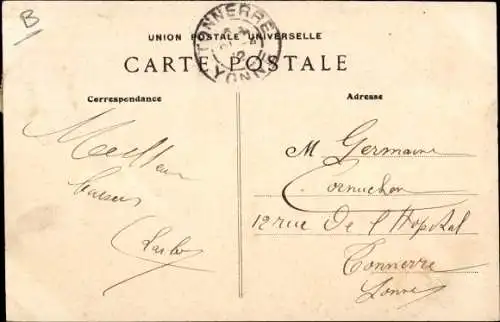 B
TONNERRE
YONNE
UNION POSTALE UNIVERSELLE
CARTE POSTALE
Correspondance
Adresse
Meilleurs
baisers
M Germaine
Cornuchon
12 rue De l'Hopital
Tonnerre
Yonne